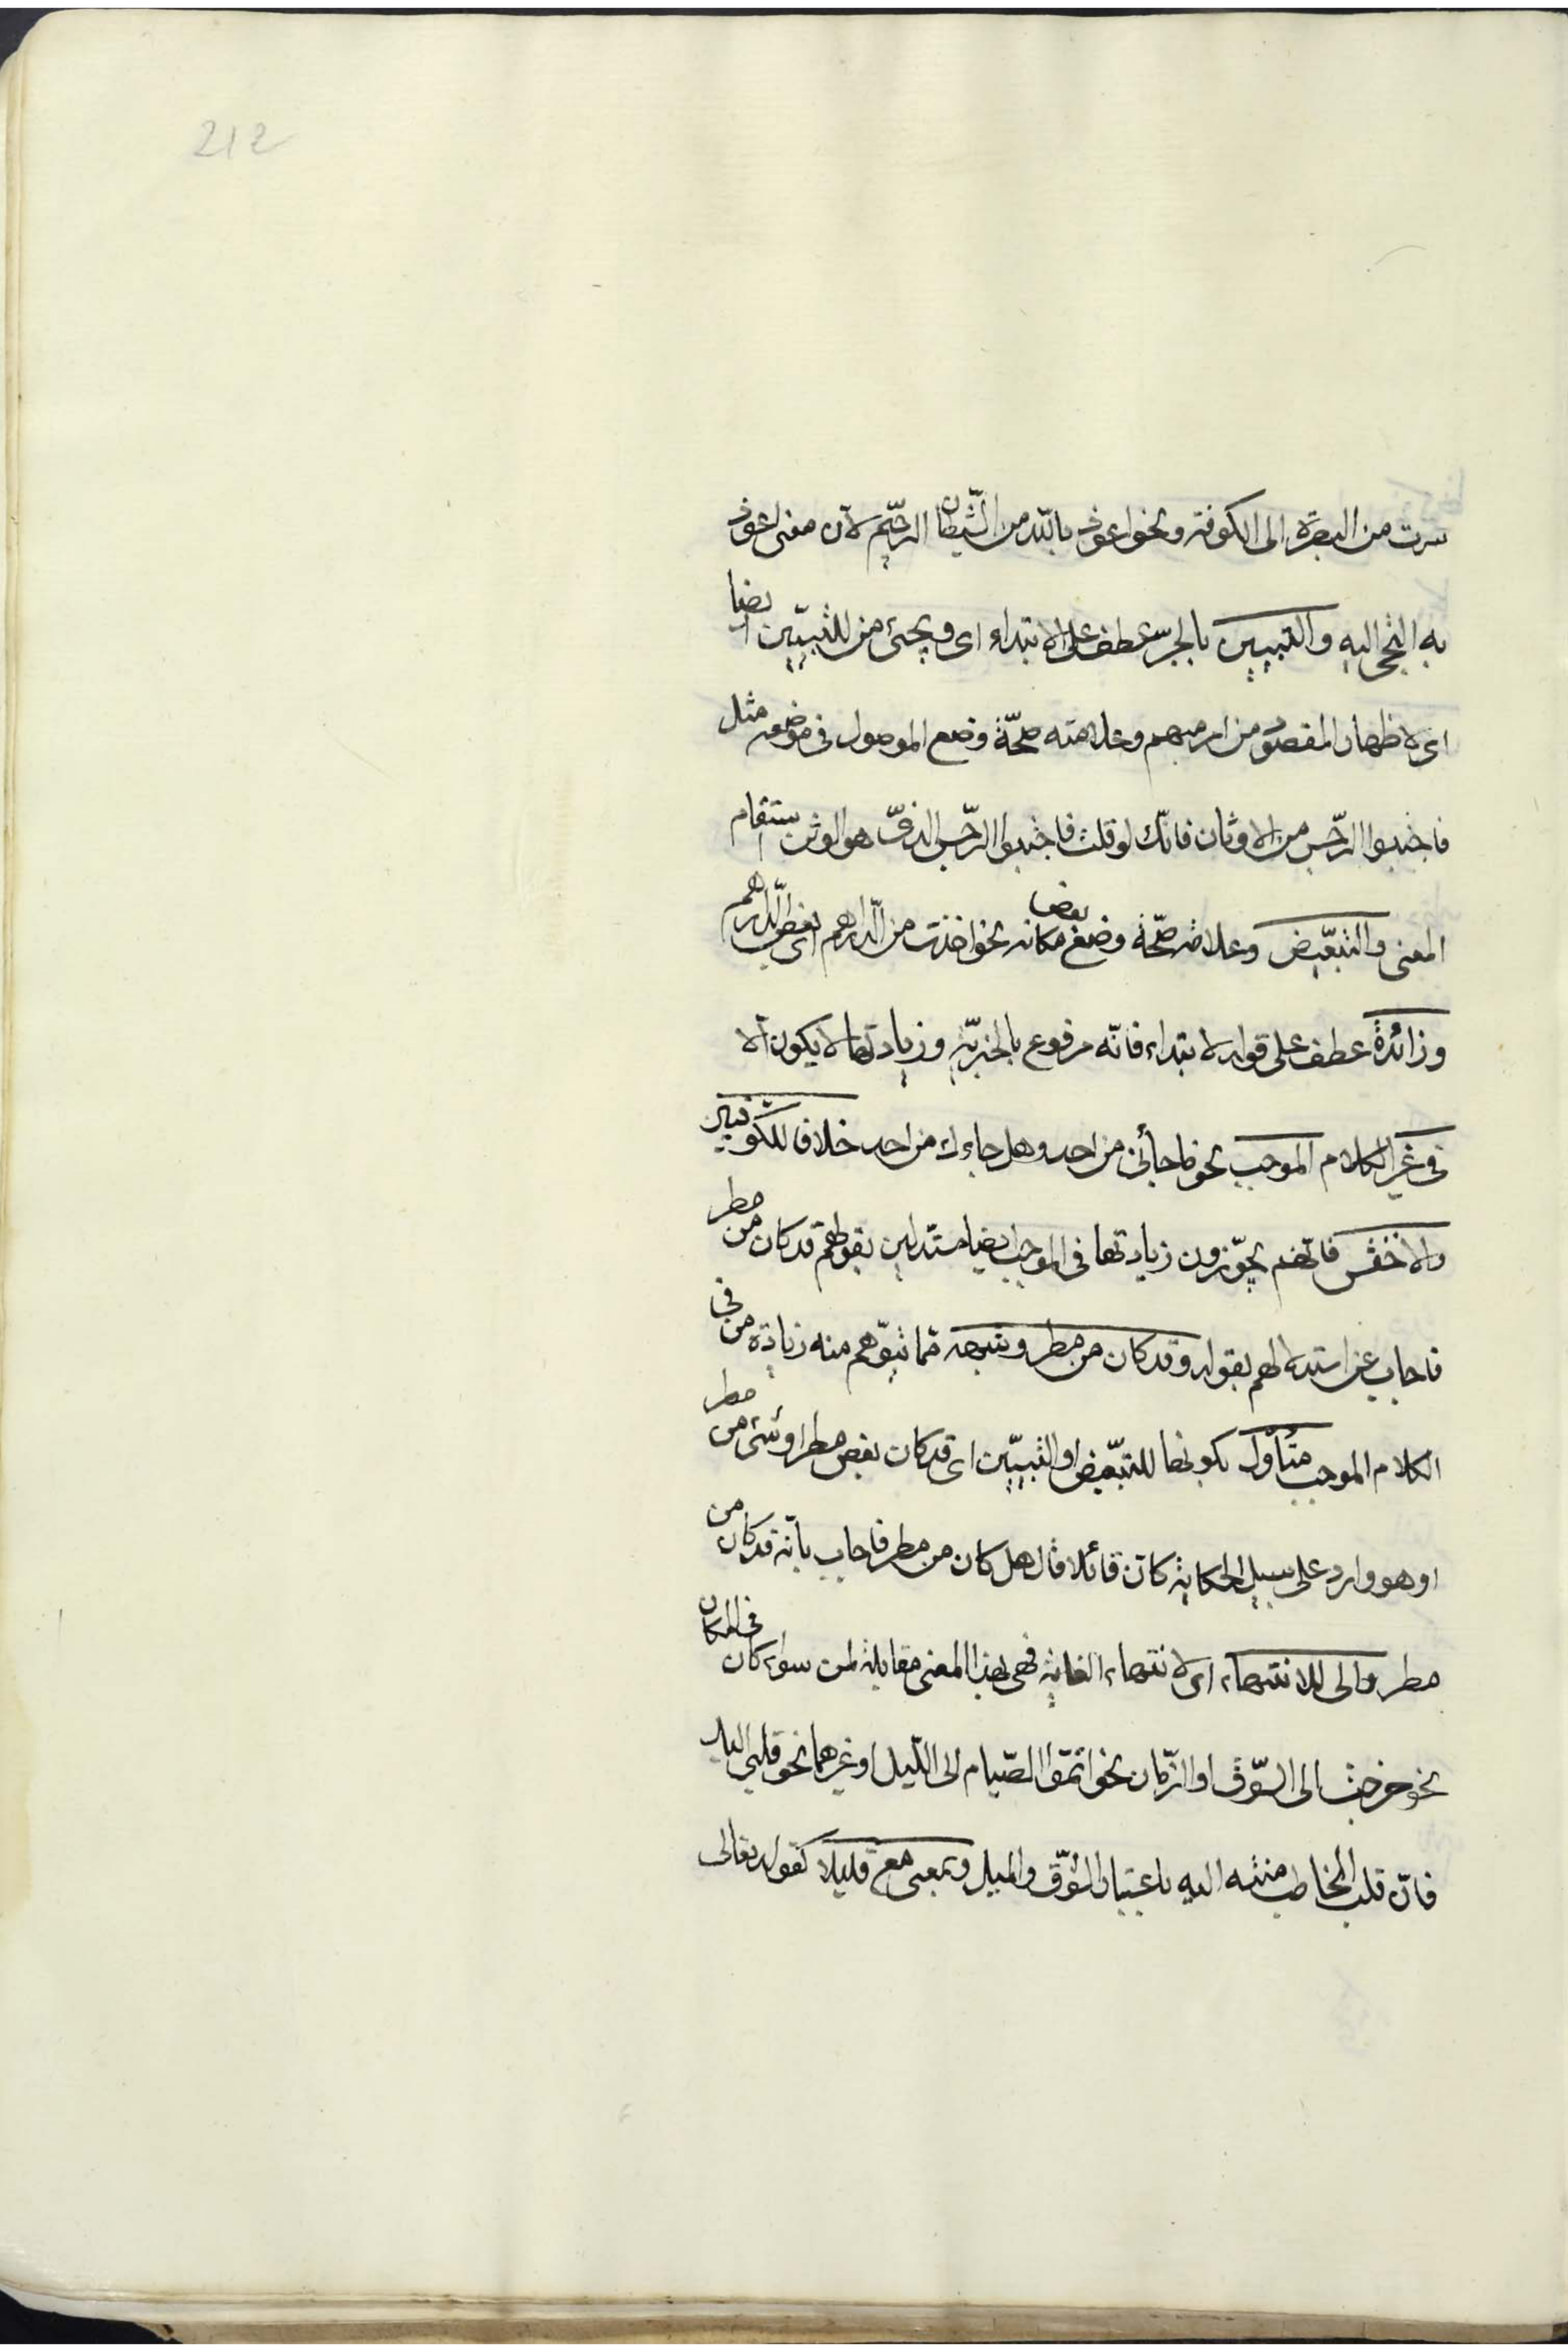 212
سرت من البصرة الى الكوفة ونحو اعوذ بالله من الشّيطان الرّجيم لانّ معنى اعوذ
به التجى اليه والتبيين بالجرّ عطف على الابتداء اى ويجئ من للتبيين ايضا
اى لاظهار المقصود من امر مبهم وعلامته صحّة وضع الموصول فى موضعه مثل
فاجتنبوا الرّجس من الاوثان فانّك لو قلت فاجتنبوا الرّجس الذى هو الوثن استقام
المعنى والتبعيض وعلامته صحّة وضع بعض مكانه نحو اخذت من الدّراهم اى بعض الدّراهم
وزائدة عطف على قوله لابتداء فانّه مرفوع بالخبريّة وزيادتها لا يكون الّا
فى غير الكلام الموجب نحو ما جائنى من احد وهل جاءك من احد خلافا للكوفيين
والاخفش فانّهم يجوّزون زيادتها فى الموجب ايضا مستدلين بقولهم قد كان من مطر
فاجاب عن استدلالهم بقوله وقد كان من مطر وشبهه ممّا يتوّهم منه زيادة من فى
الكلام الموجب متأوّل بكونها للتبعيض او التبيين اى قد كان بعض مطر او شئ من مطر
او هو وارد على سبيل الحكاية كانّ قائلا قال هل كان من مطر فاجاب بانّه قد كان من
مطر والى للانتهاء اى لانتهاء الغاية فهى بهذا المعنى مقابلة لمن سواء كان فى المكان
نحو خرجت الى السّوق او الزّمان نحو اتمّوا الصّيام الى اللّيل او غيرهما نحو قلبى اليك
فانّ قلب المخاطب منته اليه باعتبار الشّوق والميل وبمعنى مع قليلا كقوله تعالى